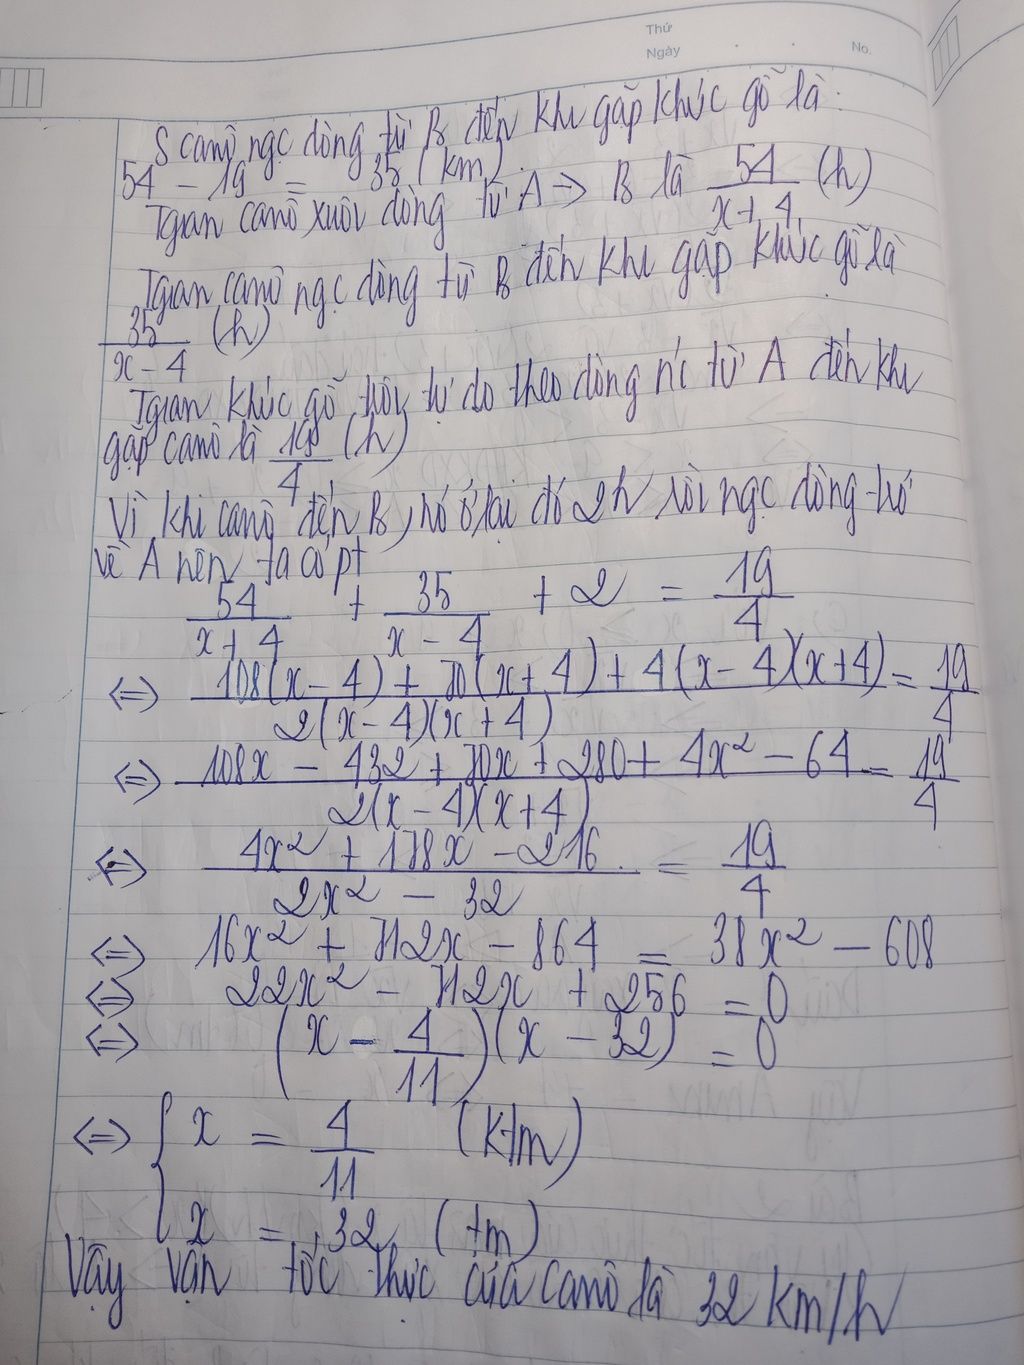 Thứ
Ngày
No.
S canô ngc dòng từ B đến khi gặp khúc gỗ là :
54 - 19 = 35 (km)
Tgian canô xuôi dòng từ A → B là 54/(x + 4) (h)
Tgian canô ngc dòng từ B đến khi gặp khúc gỗ là
35/(x - 4) (h)
Tgian khúc gỗ trôi tự do theo dòng nc từ A đến khi
gặp canô là 19/4 (h)
Vì khi canô đến B, nó ở lại đó 2h rồi ngc dòng trở
về A nên ta có pt
54/(x + 4) + 35/(x - 4) + 2 = 19/4
<=> (108(x - 4) + 70(x + 4) + 4(x - 4)(x + 4))/(2(x - 4)(x + 4)) = 19/4
<=> (108x - 432 + 70x + 280 + 4x² - 64)/(2(x - 4)(x + 4)) = 19/4
<=> (4x² + 178x - 216)/(2x² - 32) = 19/4
<=> 16x² + 712x - 864 = 38x² - 608
<=> 22x² - 712x + 256 = 0
<=> (x - 4/11)(x - 32) = 0
<=> { x = 4/11 (ktm)
x = 32 (tm)
Vậy vận tốc thực của canô là 32 km/h